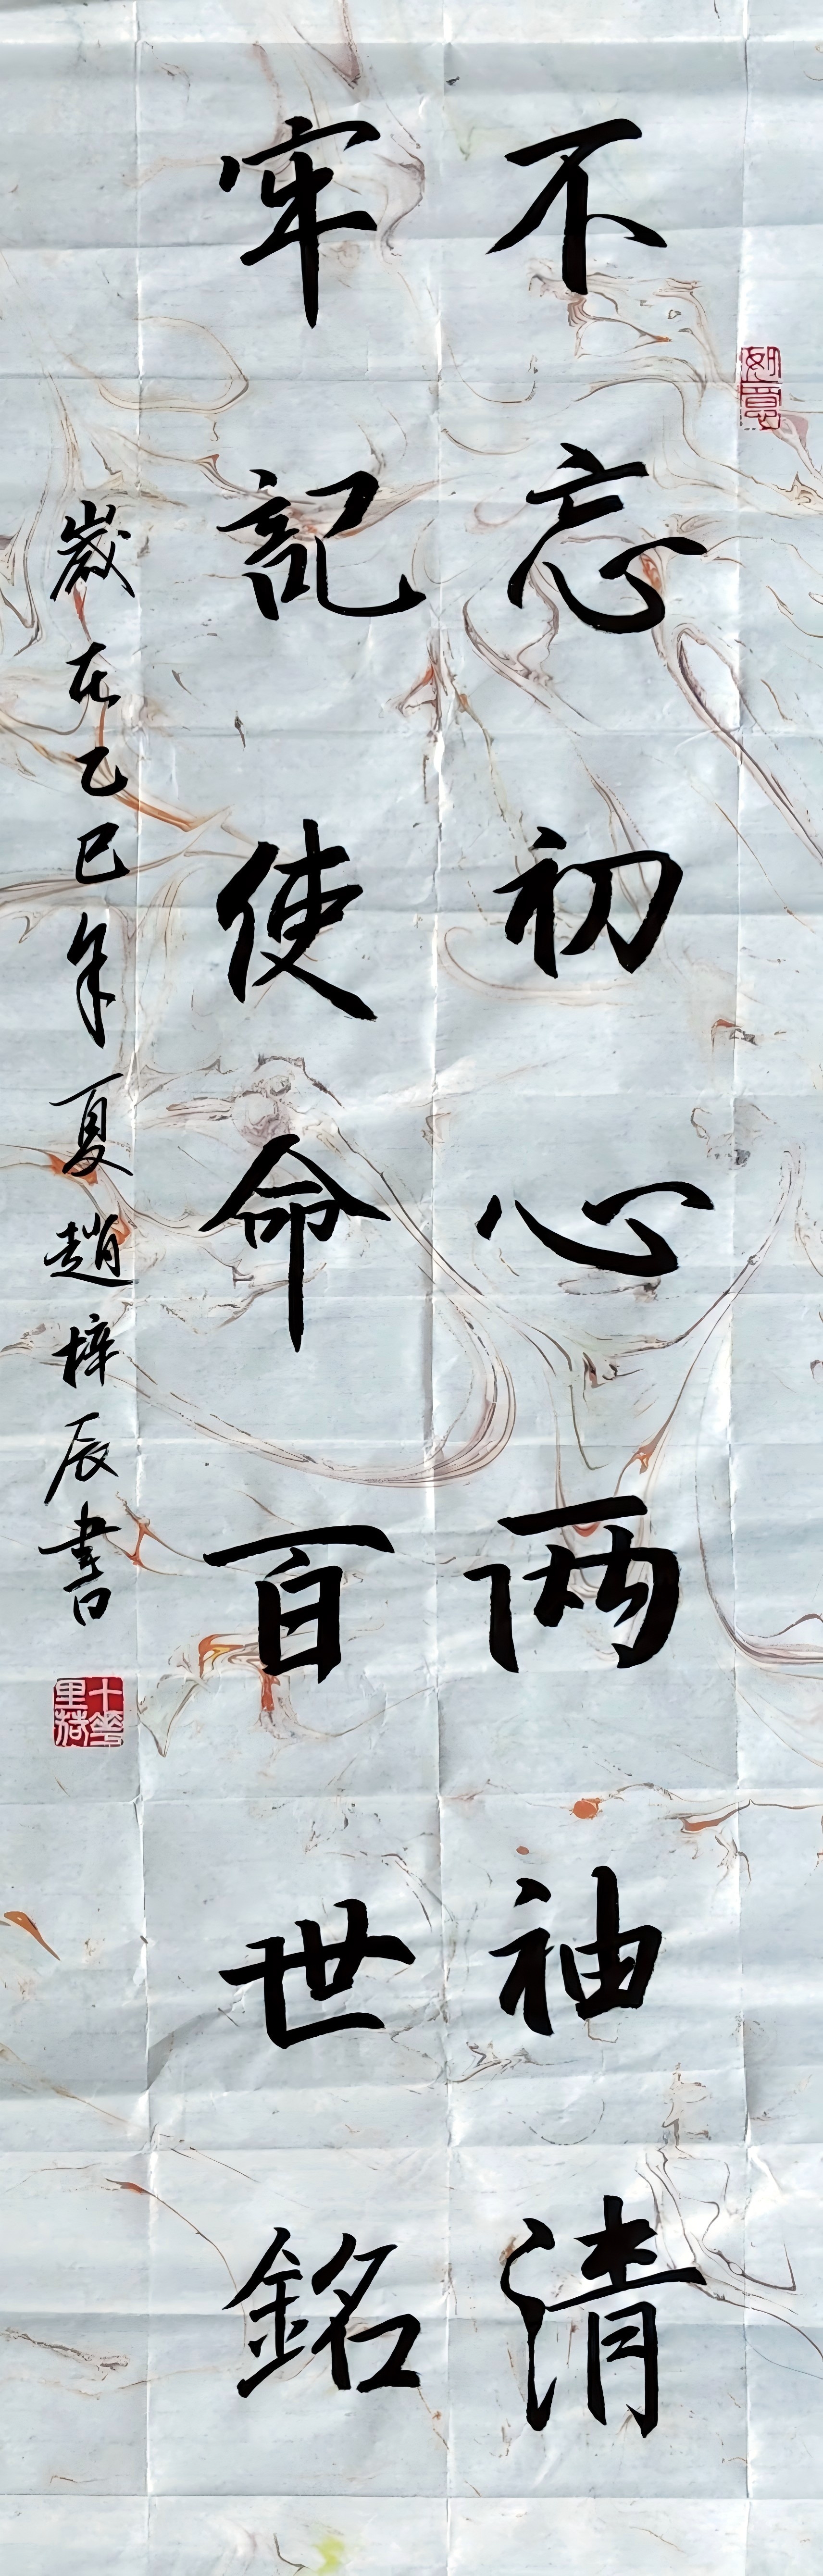 不忘初心两袖清
牢記使命百世銘
歲在乙巳年夏趙梓辰書
如意
十里荷花